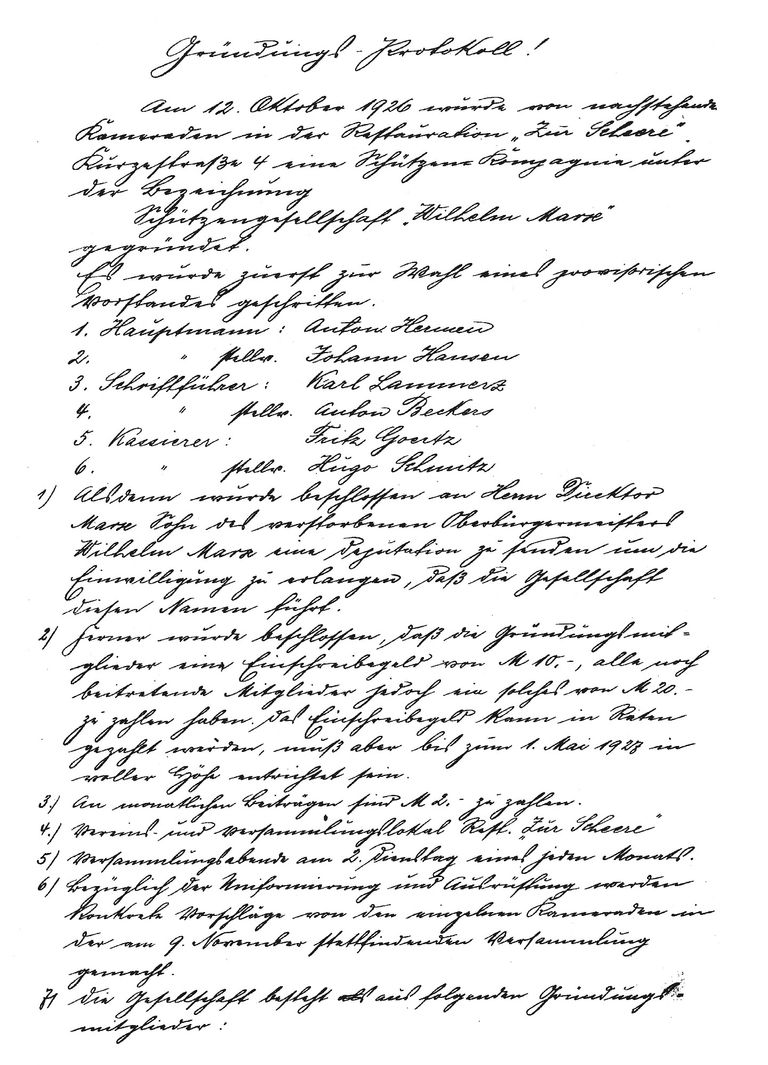 Gründungs-Protokoll!
Am 12. Oktober 1926 wurde von nachstehende
Kameraden in der Restauration „Zur Scheere"
Kurzestraße 4 eine Schützen-Kompagnie unter
der Bezeichnung
Schützengesellschaft „Wilhelm Marx"
gegründet.
Es wurde zuerst zur Wahl eines provisorischen
Vorstandes geschritten.
1. Hauptmann: Anton Hermen
2. " stellv. Johann Hansen
3. Schriftführer: Karl Lammerz
4. " stellv. Anton Beckers
5. Kassierer: Fritz Goertz
6. " stellv. Hugo Schmitz
1) Alsdann wurde beschlossen an Herrn Direktor
Marx Sohn des verstorbenen Oberbürgermeisters
Wilhelm Marx eine Deputation zu senden um die
Einwilligung zu erlangen, daß die Gesellschaft
diesen Namen führt.
2) Ferner wurde beschlossen, daß die Gründungsmit-
glieder eine Einschreibegeld von M 10.-, alle noch
beitretende Mitglieder jedoch ein solches von M 20.-
zu zahlen haben. Das Einschreibegeld kann in Raten
gezahlt werden, muß aber bis zum 1. Mai 1927 in
voller Höhe entrichtet sein.
3.) An monatlichen Beiträgen sind M 2.- zu zahlen.
4.) Vereins- und Versammlungslokal Rest. Zur Scheere"
5) Versammlungsabende am 2. Dienstag eines jeden Monats.
6) Bezüglich der Uniformierung und Ausrüstung werden
konkrete Vorschläge von den einzelnen Kameraden in
der am 9. November stattfindenden Versammlung
gemacht.
7) Die Gesellschaft besteht als aus folgenden Gründungs-
mitglieder: